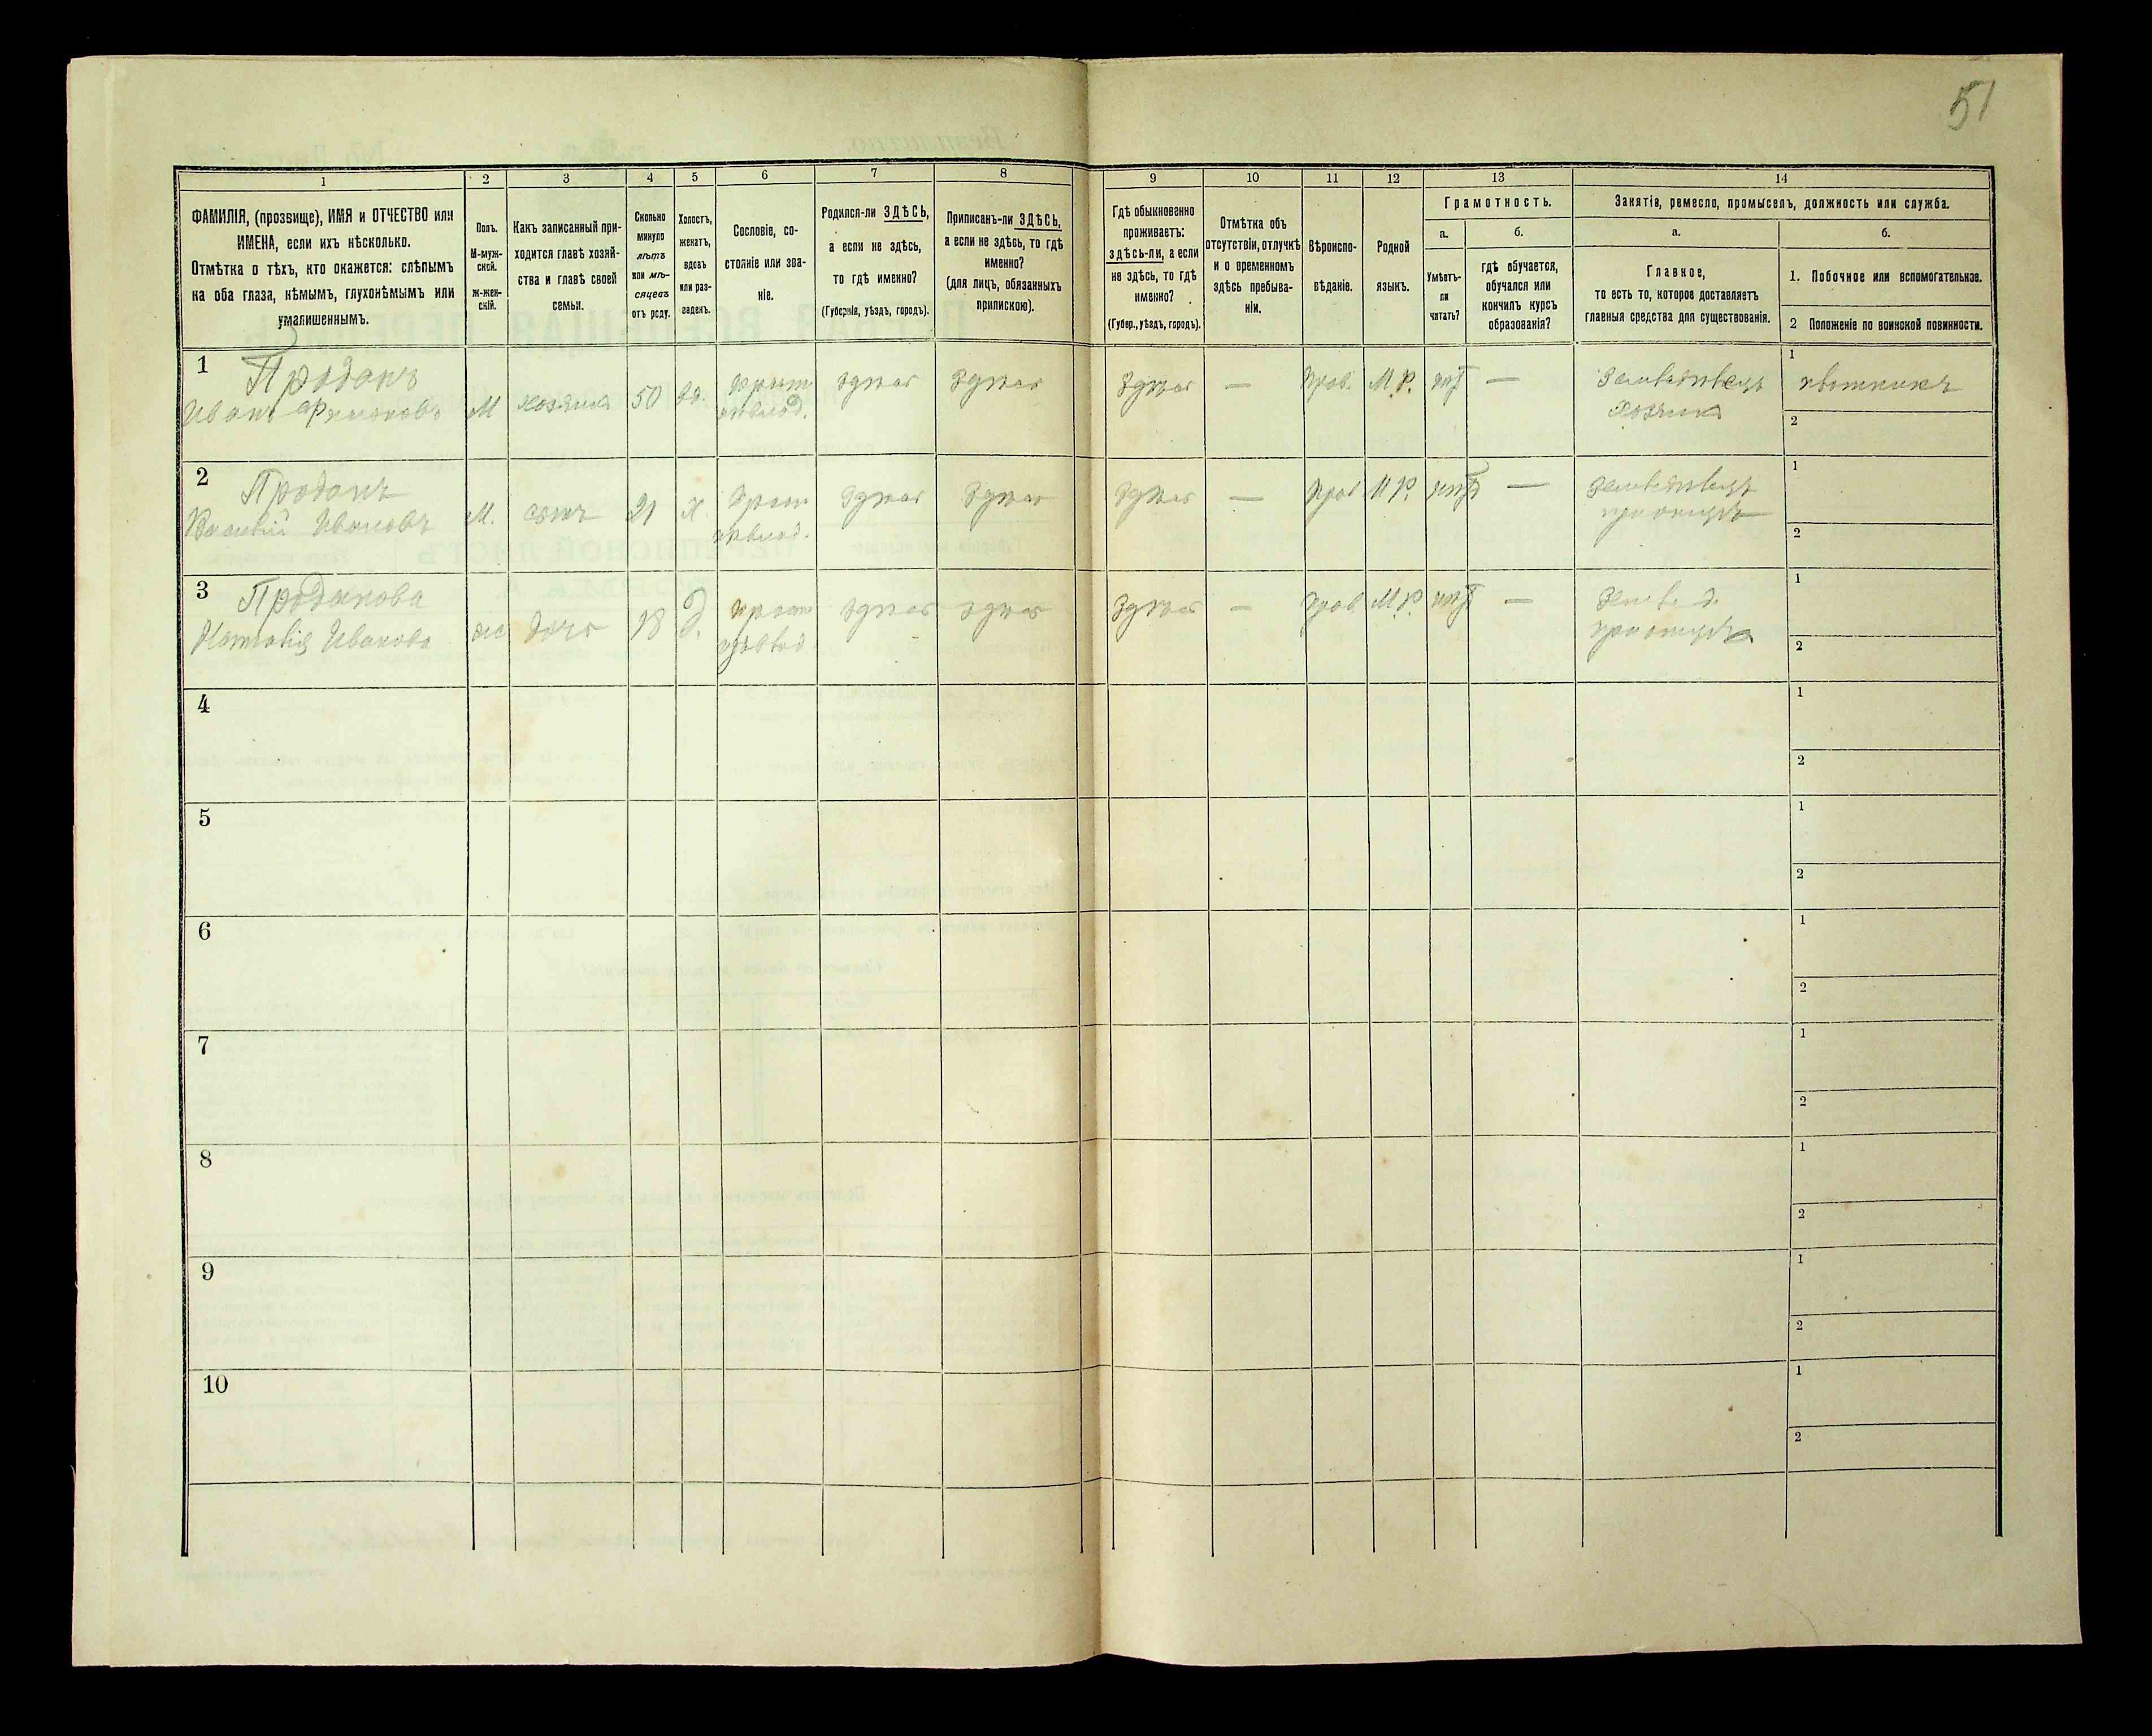 51
1 2 3 4 5 6 7 8 9 10 11 12 13 14
ФАМИЛІЯ, (прозвище), ИМЯ и ОТЧЕСТВО или
ИМЕНА, если ихъ нѣсколько.
Отмѣтка о тѣхъ, кто окажется: слѣпымъ
на оба глаза, нѣмымъ, глухонѣмымъ или
умалишеннымъ.
Полъ.
М-муж-
ской.
Ж-жен-
скій.
Какъ записанный при-
ходится главѣ хозяй-
ства и главѣ своей
семьи.
Сколько
минуло
лѣтъ
или мѣ-
сяцевъ
отъ роду.
Холостъ,
женатъ,
вдовъ
или раз-
веденъ.
Сословіе, со-
стояніе или зва-
ніе.
Родился-ли ЗДѢСЬ,
а если не здѣсь,
то гдѣ именно?
(Губернія, уѣздъ, городъ).
Приписанъ-ли ЗДѢСЬ,
а если не здѣсь, то гдѣ
именно?
(для лицъ, обязанныхъ
припискою).
Гдѣ обыкновенно
проживаетъ:
здѣсь-ли, а если
не здѣсь, то гдѣ
именно?
(Губер., уѣздъ, городъ).
Отмѣтка объ
отсутствіи, отлучкѣ
и о временномъ
здѣсь пребыва-
ніи.
Вѣроиспо-
вѣданіе.
Родной
языкъ.
Грамотность.
а.
Умѣетъ-
ли
читать?
б.
гдѣ обучается,
обучался или
кончилъ курсъ
образованія?
Занятія, ремесло, промыселъ, должность или служба.
а.
Главное,
то есть то, которое доставляетъ
главныя средства для существованія.
б.
1. Побочное или вспомогательное.
2 Положеніе по воинской повинности.
1 Проданъ
Иванъ
М хозяинъ 50 вд. крест. здѣсь здѣсь здѣсь — Прав. М.Р. нѣт —
хозяинъ
1
2
2 Проданъ
Василий Ивановъ
М. сынъ 21 Х. крест. здѣсь здѣсь здѣсь — Прав. М.Р. нѣт —
1
2
3 Проданова
Наталія Иванова
ж дочь 18 д. крест. здѣсь здѣсь здѣсь — Прав. М.Р. нѣт —
1
2
4
1
2
5
1
2
6
1
2
7
1
2
8
1
2
9
1
2
10
1
2